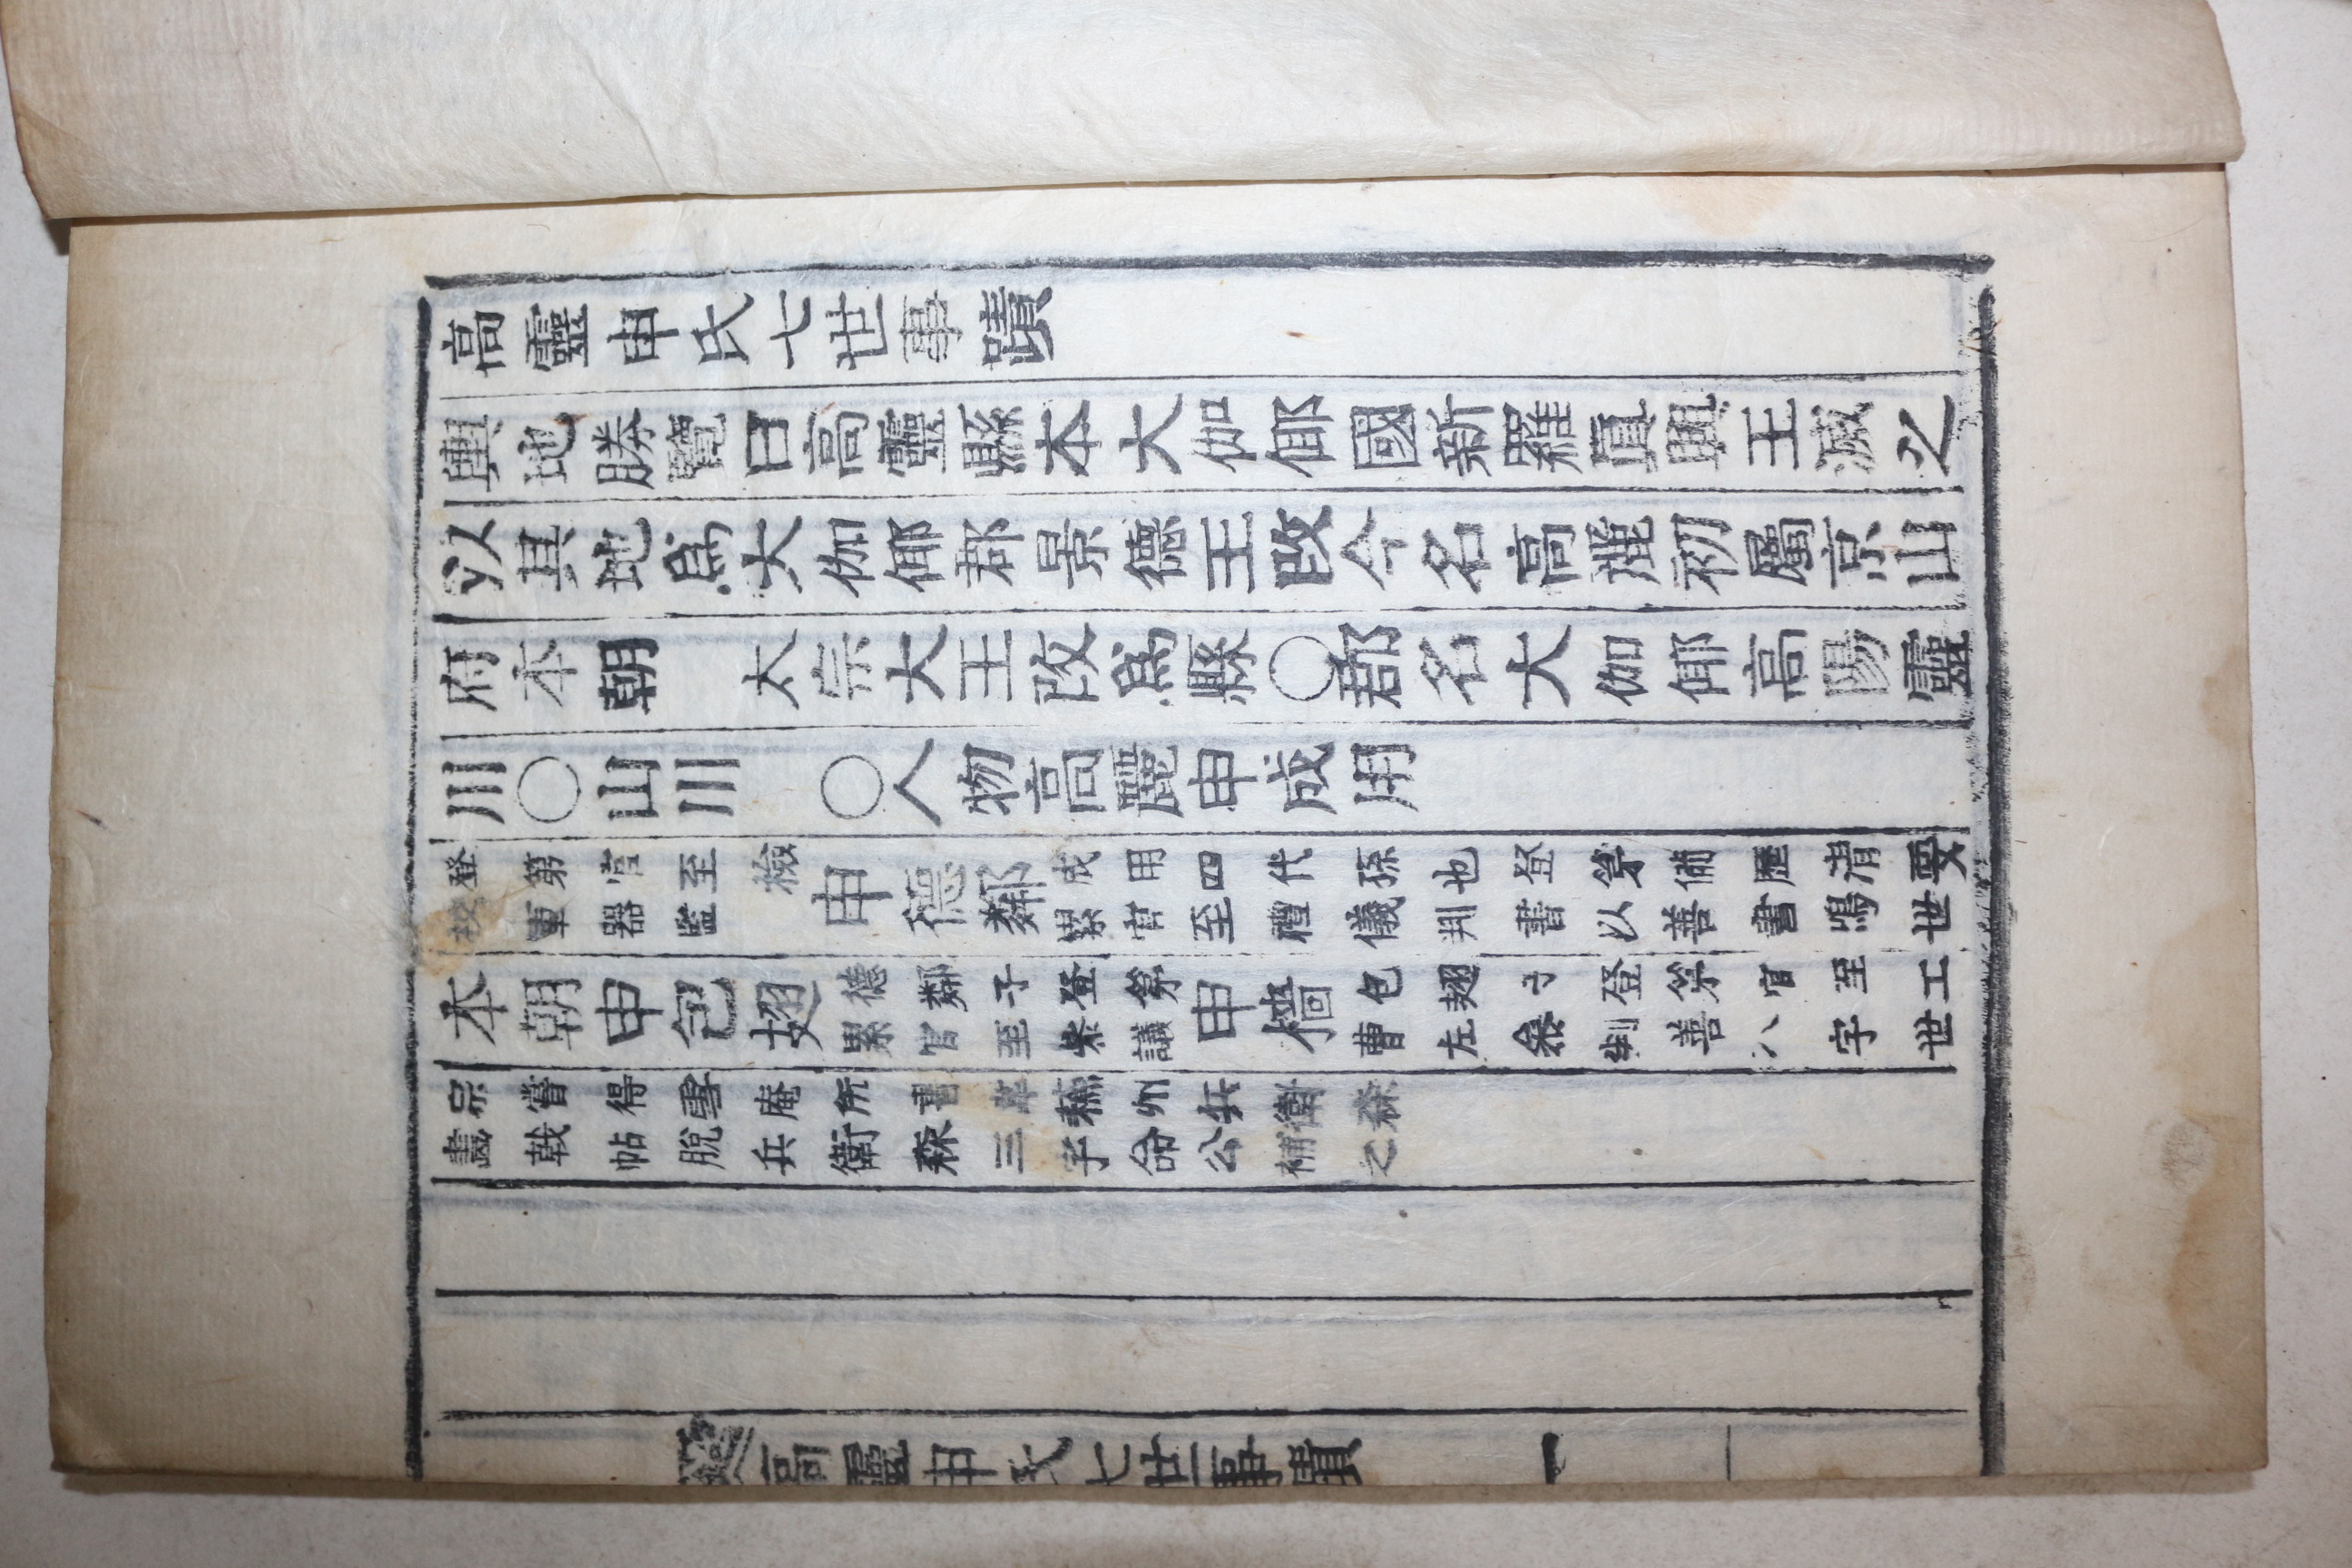 高靈申氏七世事蹟
輿地勝覽曰高靈縣本大伽倻國新羅眞興王滅之
以其地爲大伽倻郡景德王改今名高麗初屬京山
府本朝 太宗大王改爲縣○郡名大伽倻高陽靈
川○山川 ○人物高麗申成用
登第官至檢
校軍器監
申德鄰
成用四代孫也登第備歷清要
累官至禮儀判書以善書鳴世
本朝申包翅
德鄰子登第
累官至參議
申檣
包翅子登第官至工
曹左參判善八字世
宗嘗得雪庵所書韋蘇州兵衛森
畵戟帖脫兵衛森三字命公補之
高靈申氏七世事蹟 一